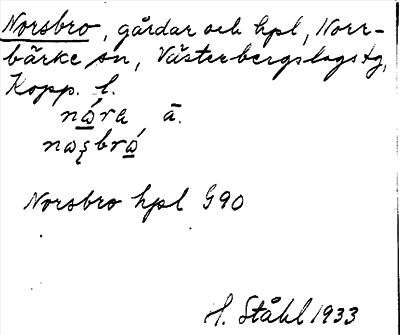 Norsbro, gårdar och hpl, Norr-
bärke sn, Västerbergslags tg,
Kopp. l.
nǻra ā.
nas̨brǻ
Norsbro hpl G90
H. Ståhl 1933